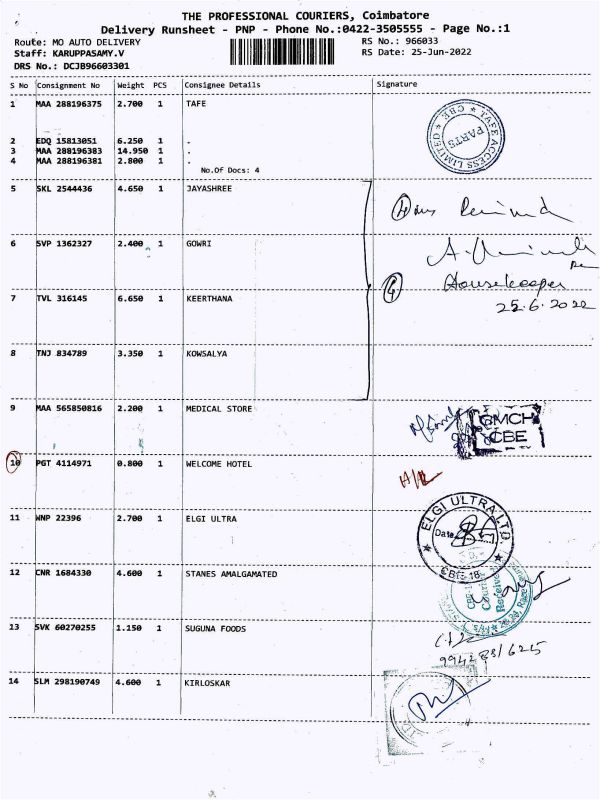 THE PROFESSIONAL COURIERS, Coimbatore
Delivery Runsheet - PNP - Phone No.:0422-3505555 - Page No.:1
Route: MO AUTO DELIVERY RS No.: 966033
Staff: KARUPPASAMY.V RS Date: 25-Jun-2022
DRS No.: DCJB96603301
S No Consignment No Weight PCS Consignee Details Signature
1 MAA 288196375 2.700 1 TAFE
TAFE ACCESS LIMITED ★ CBE ★
PARTS
2 EDQ 15813051 6.250 1 .
3 MAA 288196383 14.950 1 .
4 MAA 288196381 2.800 1 .
No.Of Docs: 4
5 SKL 2544436 4.650 1 JAYASHREE
6 SVP 1362327 2.400 1 GOWRI
④ Housekeeper
25.6.2022
7 TVL 316145 6.650 1 KEERTHANA
8 TNJ 834789 3.350 1 KOWSALYA
9 MAA 565850816 2.200 1 MEDICAL STORE
GMCH
CBE
10 PGT 4114971 0.800 1 WELCOME HOTEL
11 WNP 22396 2.700 1 ELGI ULTRA
ELGI ULTRA LTD.
Date
CBE-18
12 CNR 1684330 4.600 1 STANES AMALGAMATED
13 SVK 60270255 1.150 1 SUGUNA FOODS
14 SLM 298190749 4.600 1 KIRLOSKAR